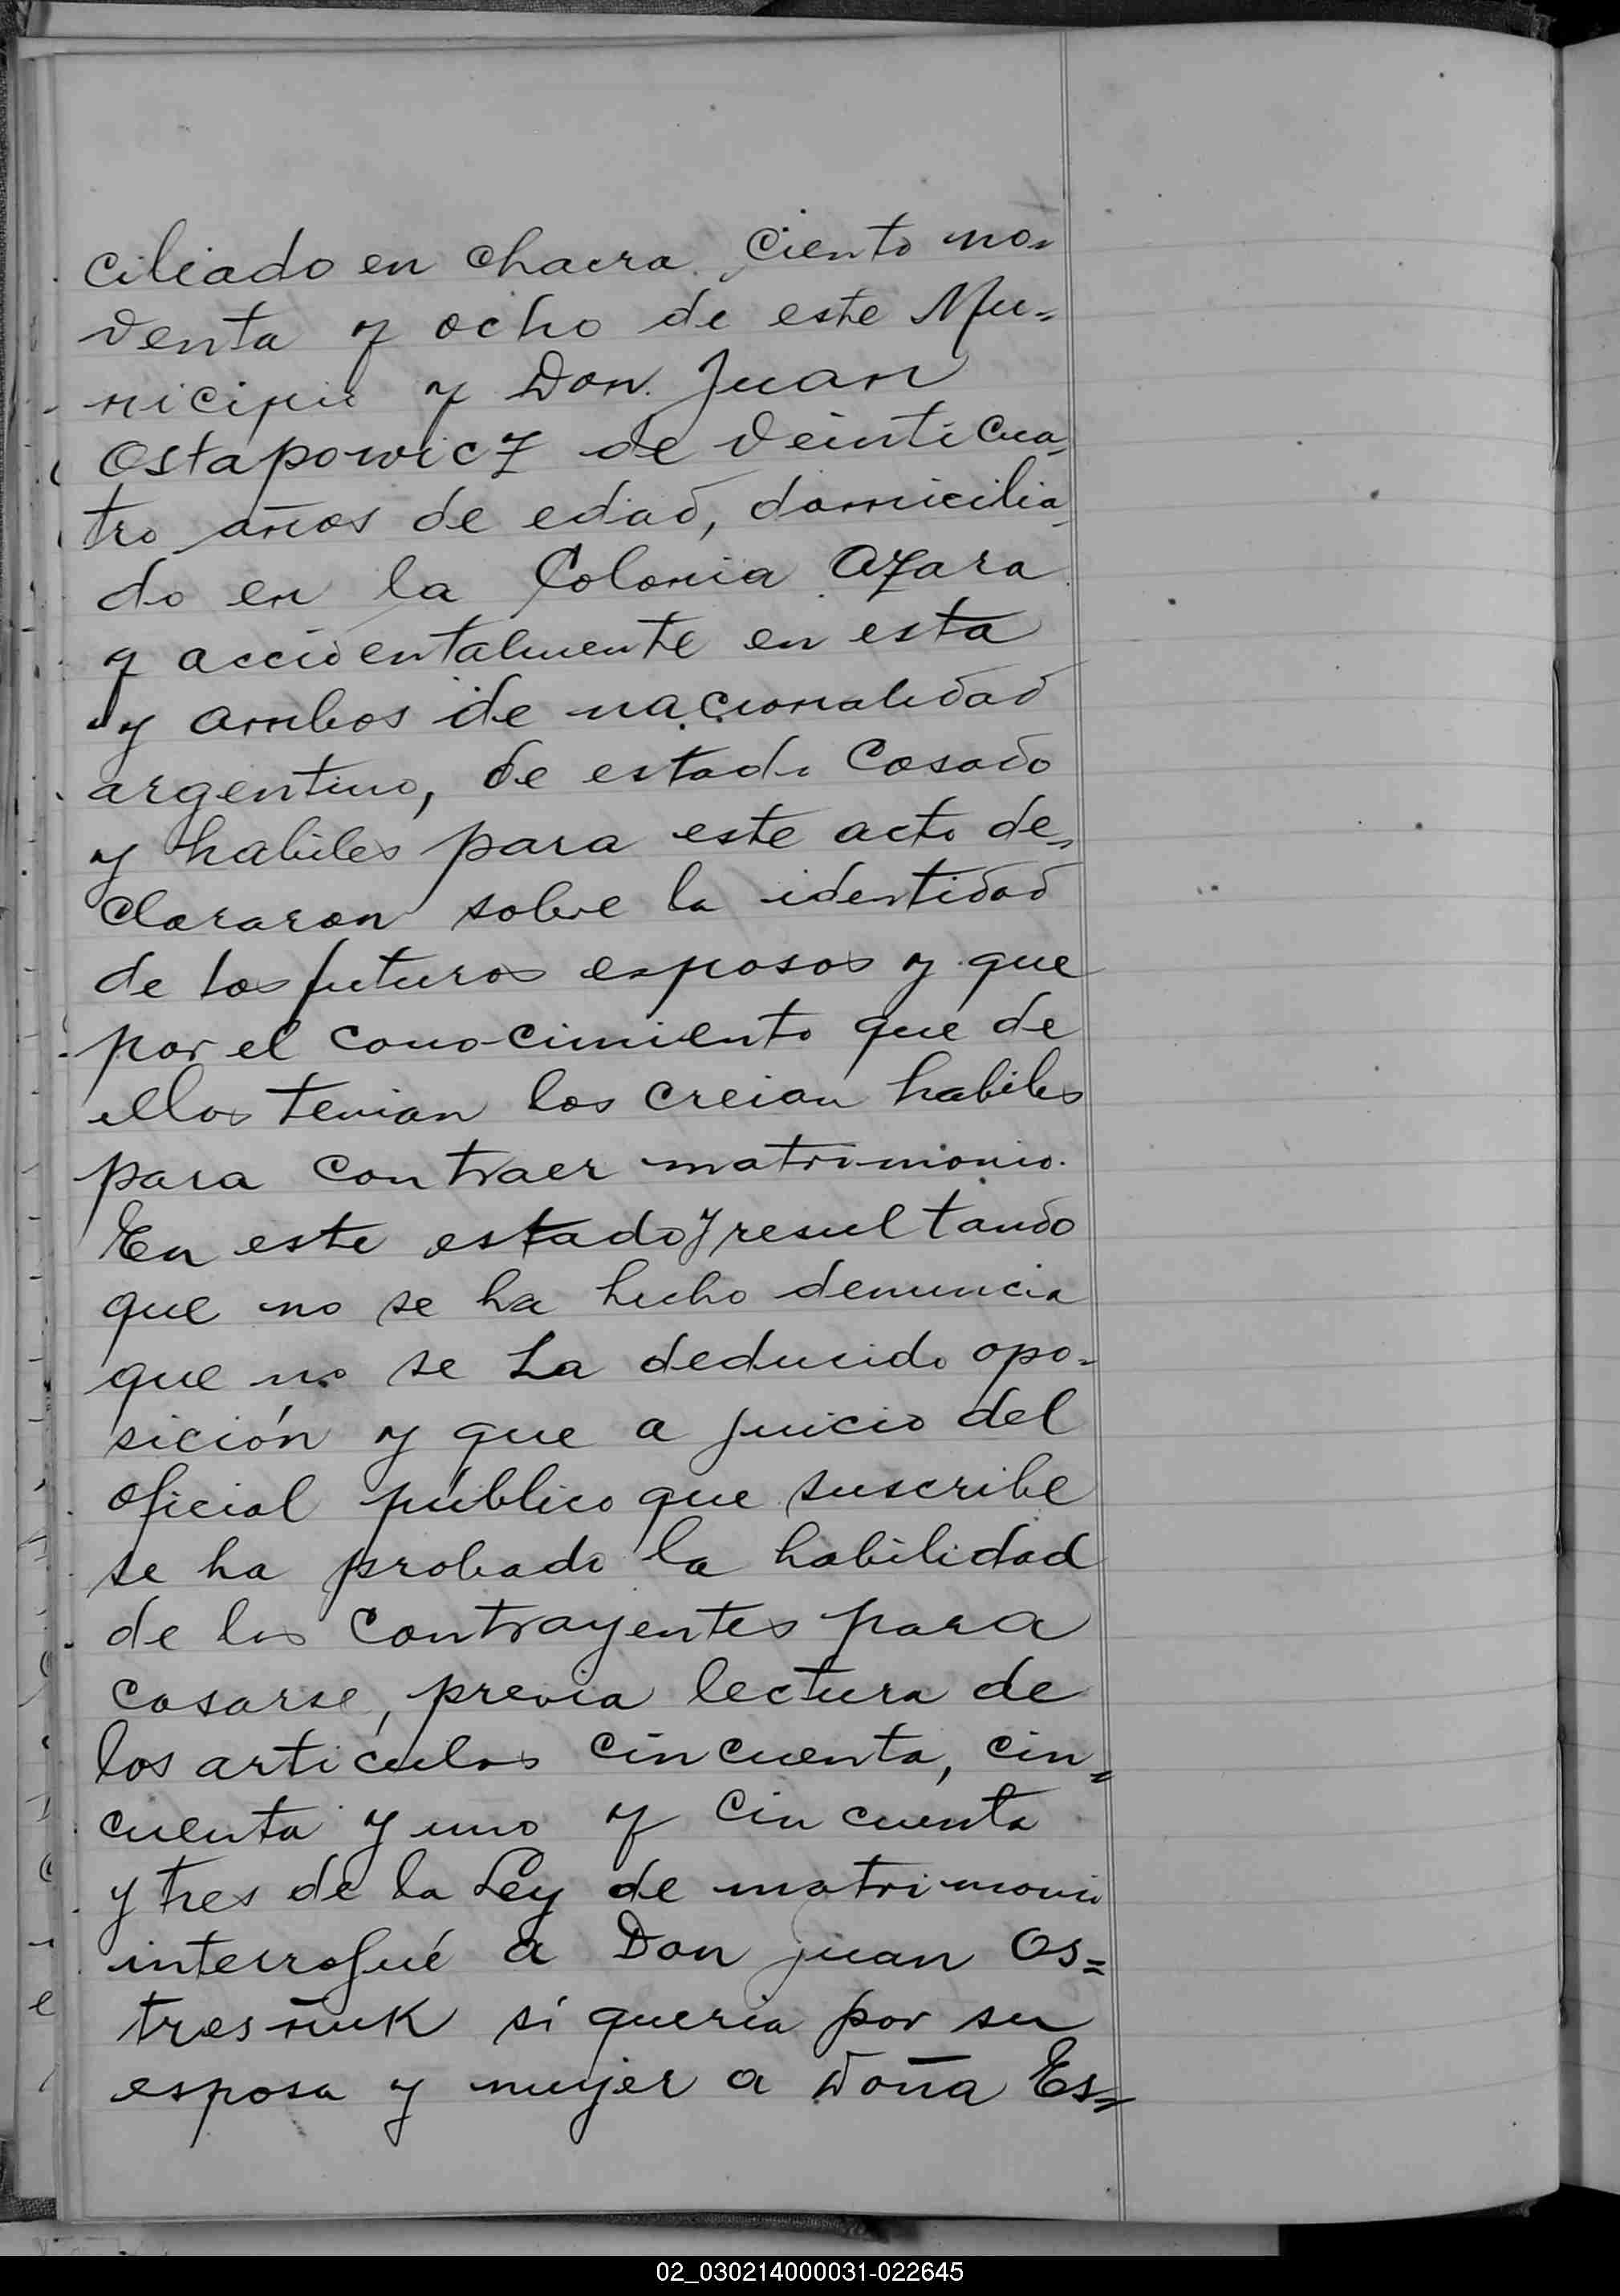 ciliado en chacra ciento no=
venta y ocho de este Mu=
nicipio y Don Juan
Ostapowicz de veinticua=
tro años de edad, domicilia=
do en la Colonia Azara
y accidentalmente en esta
y ambos de nacionalidad
argentino, de estado Casado
y habiles para este acto de=
clararon sobre la identidad
de los futuros esposos y que
por el conocimiento que de
ellos tenian los creian habiles
para contraer matrimonio.
En este estado y resultando
que no se ha hecho denuncia
que no se ha deducido opo=
sición y que a juicio del
oficial público que suscribe
se ha probado la habilidad
de los contrayentes para
casarse, previa lectura de
los articulos cincuenta, cin=
cuenta y uno y cincuenta
y tres de la Ley de matrimonio
interrogué a Don Juan Os=
tresñuk si queria por su
esposa y mujer a Doña Es=
02_030214000031-022645